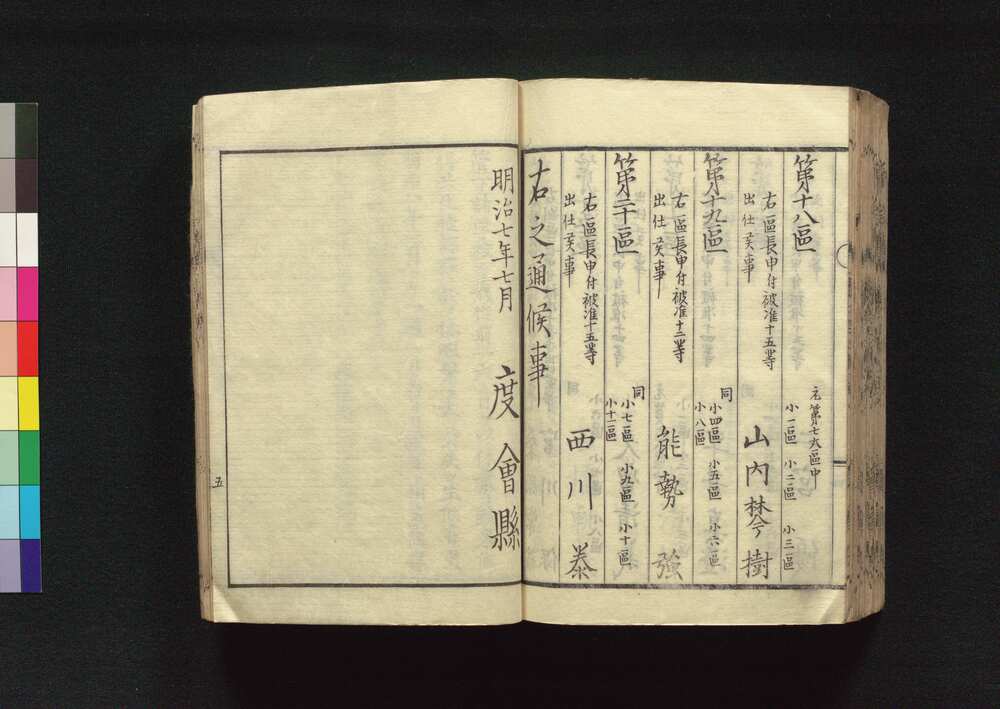 第十八區
元第七大區中
小一區 小二區 小三區
右區長申付被准十五等
出仕候事
山内樷樹
第十九區
同
小四區 小五區 小六區
小八區
右區長申付被准十二等
出仕候事
能勢 強
第二十區
同
小七區 小九區 小十區
小十一區
右區長申付被准十五等
出仕候事
西川 泰
右之通候事
明治七年七月
度會縣
五